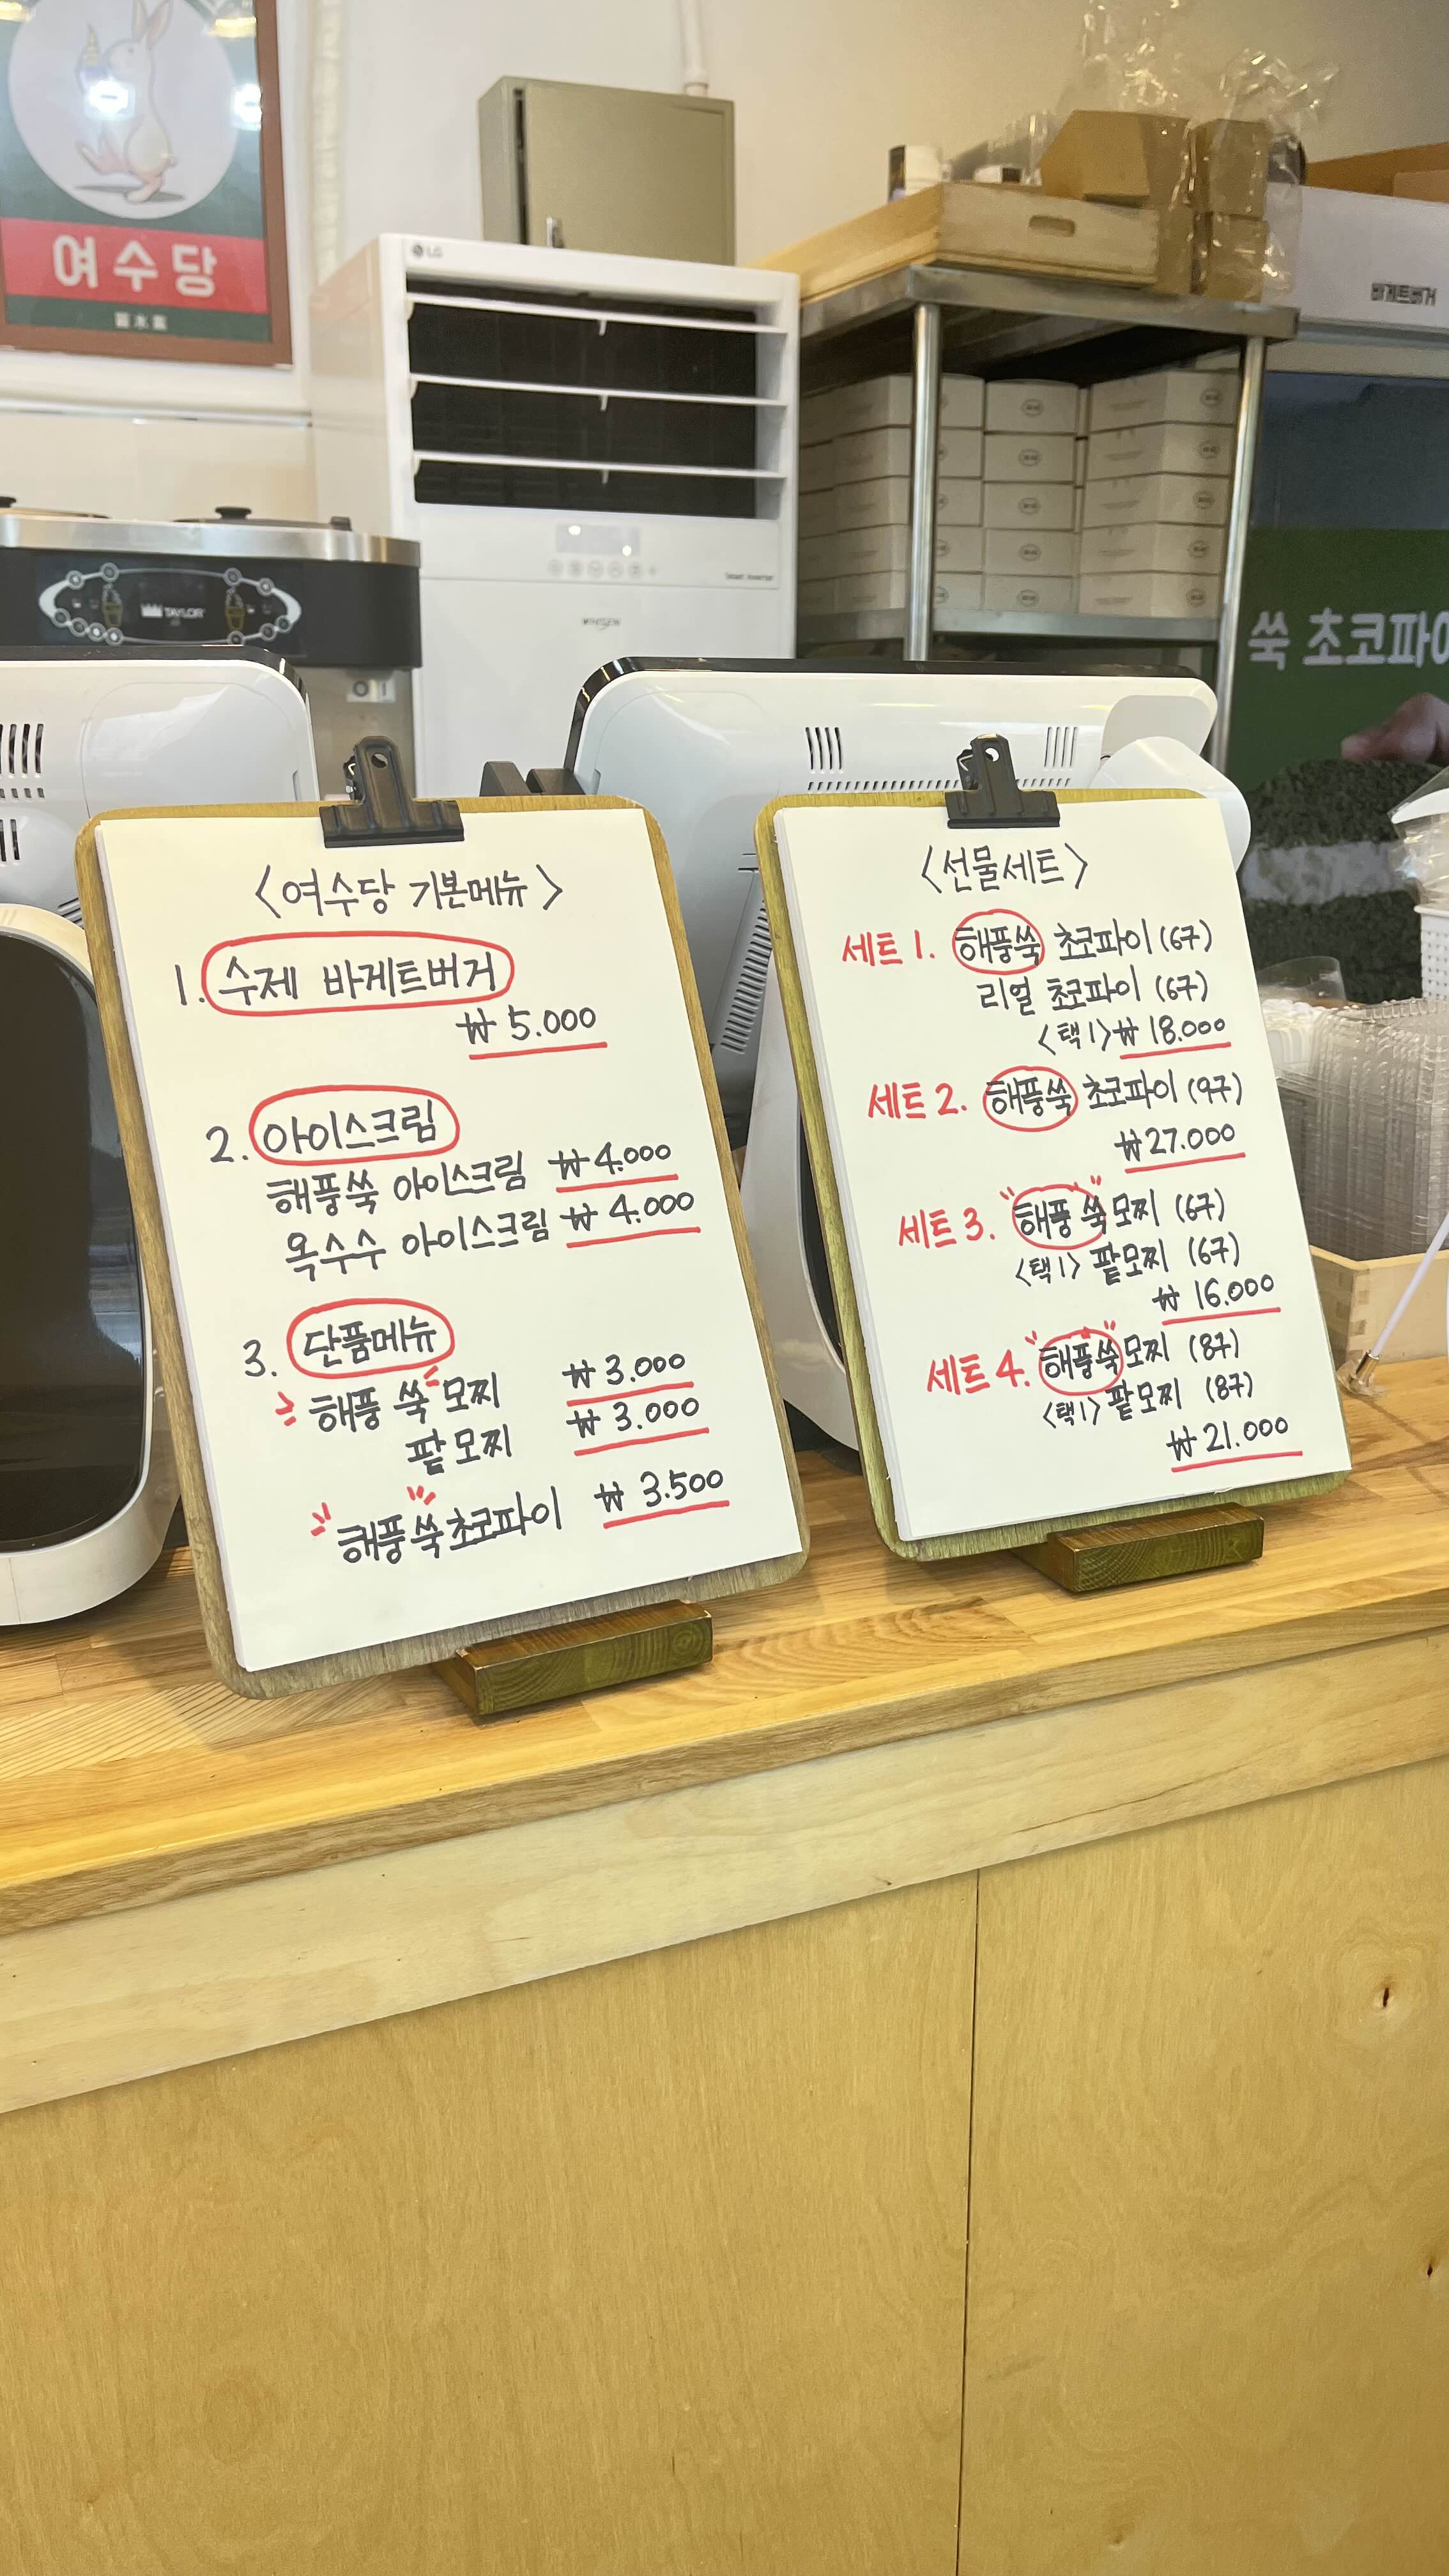 여수당
麗水當
LG
바게트버거
TAYLOR
WHISEN
Smart Inverter
쑥 초코파이
<여수당 기본메뉴>
1. 수제 바게트버거
₩ 5.000
2. 아이스크림
해풍쑥 아이스크림 ₩ 4.000
옥수수 아이스크림 ₩ 4.000
3. 단품메뉴
해풍 쑥 모찌 ₩ 3.000
팥 모찌 ₩ 3.000
해풍쑥초코파이 ₩ 3.500
<선물세트>
세트 1. 해풍쑥 초코파이 (6구)
리얼 초코파이 (6구)
<택1> ₩ 18.000
세트 2. 해풍쑥 초코파이 (9구)
₩ 27.000
세트 3. "해풍쑥" 모찌 (6구)
<택1> 팥모찌 (6구)
₩ 16.000
세트 4. "해풍쑥" 모찌 (8구)
<택1> 팥모찌 (8구)
₩ 21.000